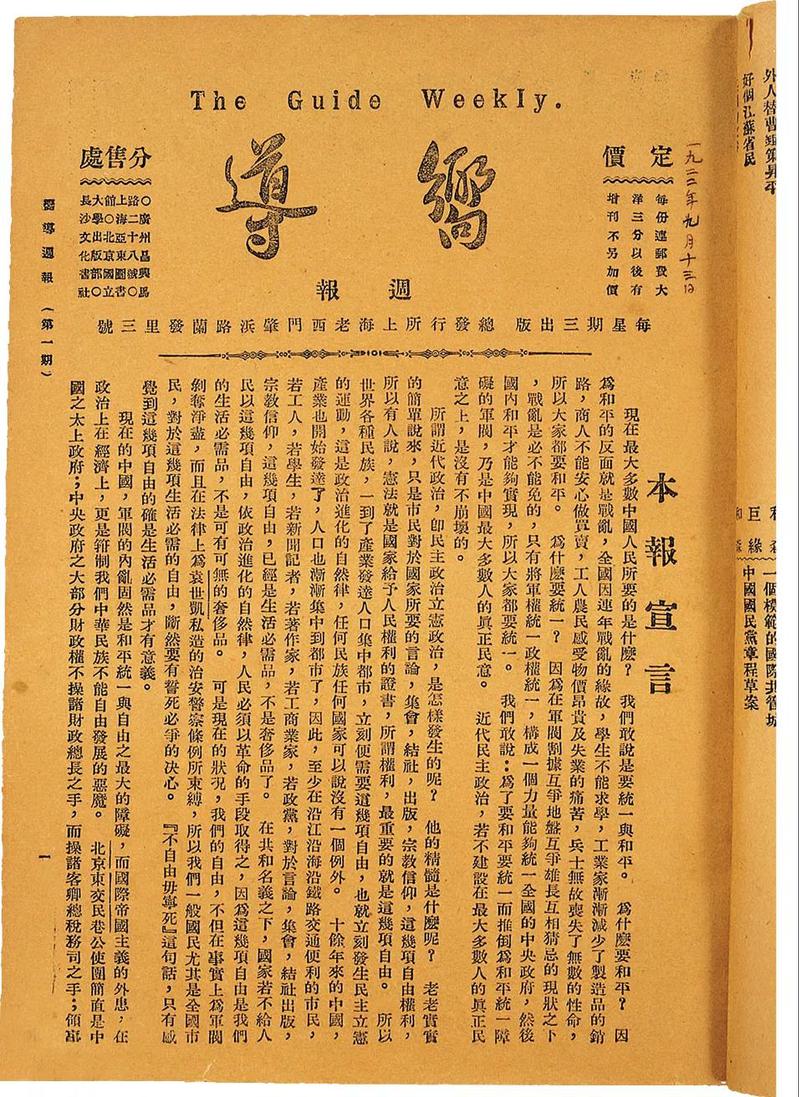 The Guide Weekly.
嚮導
週報
定價
每份連郵費大
洋三分以後有
增刊不另加價
一九二二年九月十三日
分售處
〇廣州昌興馬
路二十八號〇
上海亞東圖書
館〇北京國立
大學出版部〇
長沙文化書社
每星期三出版 總發行所上海老西門肇浜路蘭發里三號
嚮導週報(第一期)
本報宣言
現在最大多數中國人民所要的是什麽? 我們敢說是要統一與和平。 爲什麽要和平? 因
爲和平的反面就是戰亂,全國因連年戰亂的緣故,學生不能求學,工業家漸漸減少了製造品的銷
路,商人不能安心做買賣,工人農民感受物價昂貴及失業的痛苦,兵士無故喪失了無數的性命,
所以大家都要和平。 爲什麽要統一? 因爲在軍閥割據互爭地盤互爭雄長互相猜忌的現狀之下
,戰亂是必不能免的,只有將軍權統一政權統一,構成一個力量能夠統一全國的中央政府,然後
國內和平才能夠實現,所以大家都要統一。 我們敢說:爲了要和平要統一而推倒爲和平統一障
礙的軍閥,乃是中國最大多數人的眞正民意。 近代民主政治,若不建設在最大多數人的眞正民
意之上,是沒有不崩壞的。
所謂近代政治,卽民主政治立憲政治,是怎樣發生的呢? 他的精髓是什麽呢? 老老實實
的簡單說來,只是市民對於國家所要的言論,集會,結社,出版,宗敎信仰,這幾項自由權利,
所以有人說,憲法就是國家給予人民權利的證書,所謂權利,最重要的就是這幾項自由。 所以
世界各種民族,一到了產業發達人口集中都市,立刻便需要這幾項自由,也就立刻發生民主立憲
的運動,這是政治進化的自然律,任何民族任何國家可以說沒有一個例外。 十餘年來的中國,
產業也開始發達了,人口也漸漸集中到都市了,因此,至少在沿江沿海沿鐵路交通便利的市民,
若工人,若學生,若新聞記者,若著作家,若工商業家,若政黨,對於言論,集會,結社出版,
宗敎信仰,這幾項自由,已經是生活必需品,不是奢侈品了。 在共和名義之下,國家若不給人
民以這幾項自由,依政治進化的自然律,人民必須以革命的手段取得之,因爲這幾項自由是我們
的生活必需品,不是可有可無的奢侈品。 可是現在的狀況,我們的自由,不但在事實上爲軍閥
剝奪淨盡,而且在法律上爲袁世凱私造的治安警察條例所束縛,所以我們一般國民尤其是全國市
民,對於這幾項生活必需的自由,斷然要有誓死必爭的決心。 『不自由毋寧死』這句話,只有感
覺到這幾項自由的確是生活必需品才有意義。
現在的中國,軍閥的內亂固然是和平統一與自由之最大的障礙,而國際帝國主義的外患,在
政治上在經濟上,更是箝制我們中華民族不能自由發展的惡魔。 北京東交民巷公使團簡直是中
國之太上政府;中央政府之大部分財政權不操諸財政總長之手,而操諸客卿總稅務司之手;領事
一
好個江蘇省民
一個模範的國際共管城
中國國民黨章程草案